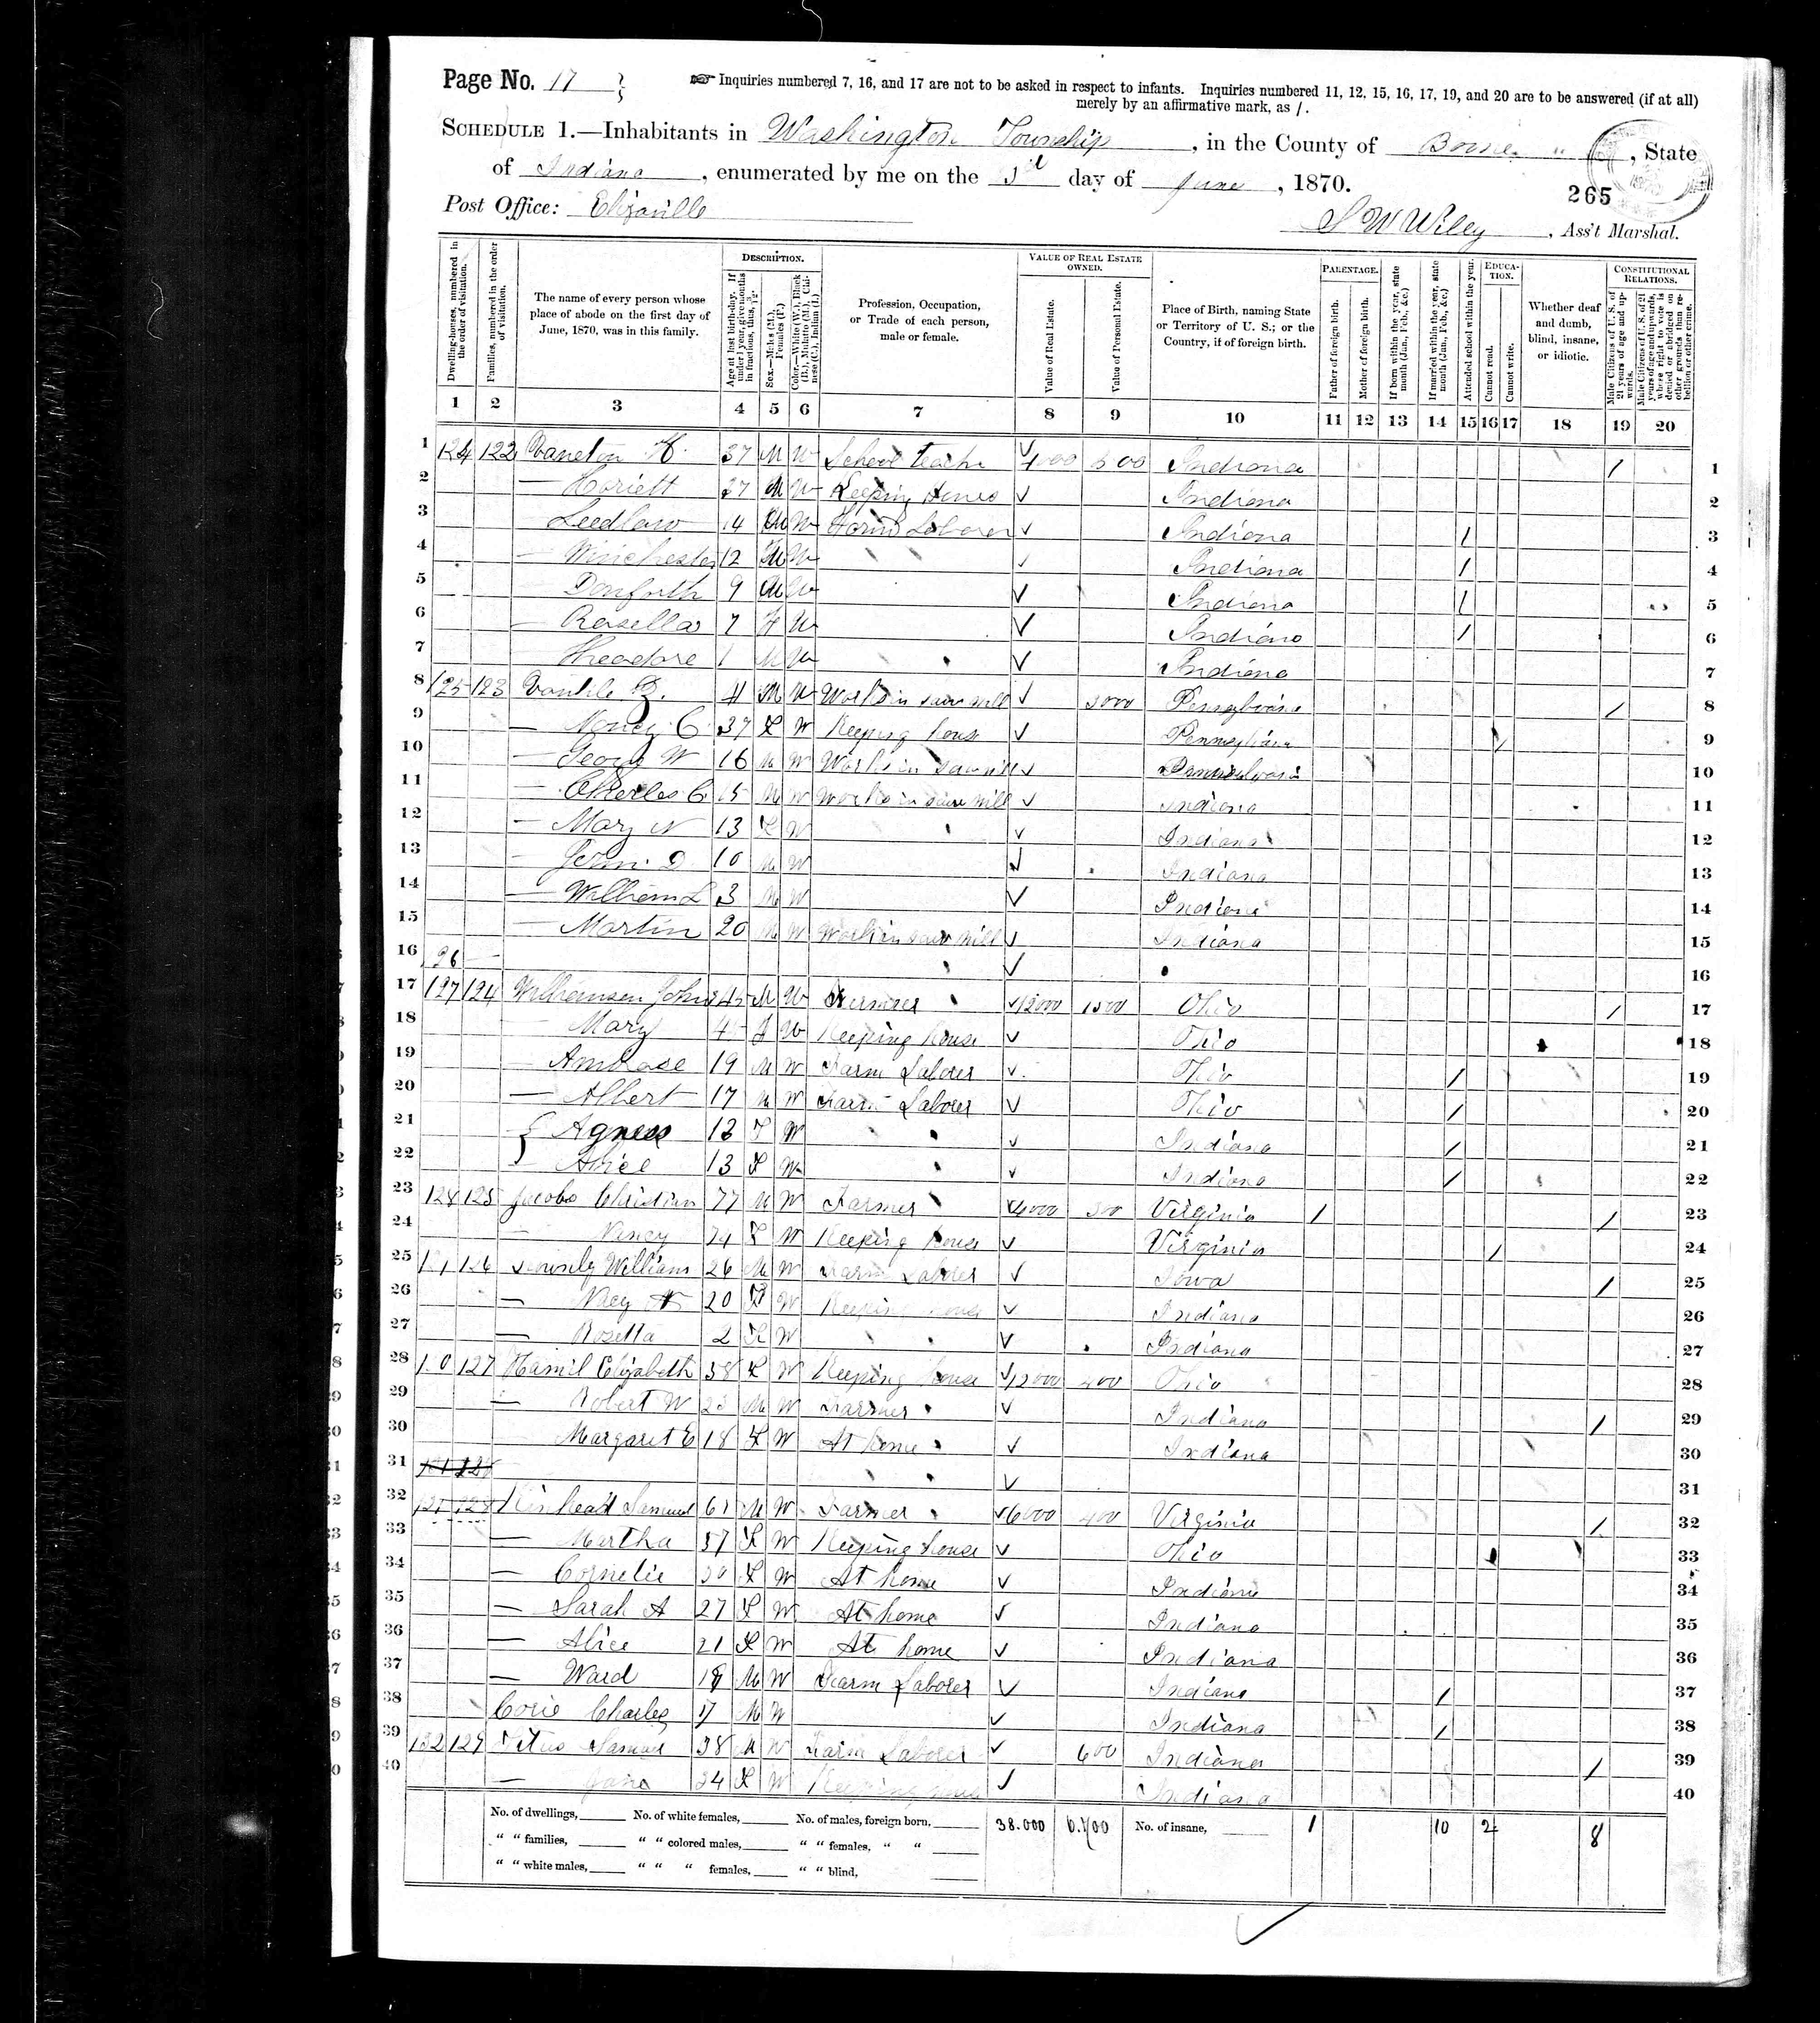 Page No. 17
☞ Inquiries numbered 7, 16, and 17 are not to be asked in respect to infants. Inquiries numbered 11, 12, 15, 16, 17, 19, and 20 are to be answered (if at all)
merely by an affirmative mark, as /.
SCHEDULE 1.—Inhabitants in Washington Township, in the County of Boone, State
of Indiana, enumerated by me on the day of June, 1870.
265
Post Office: Elizaville
S W Wiley, Ass't Marshal.
Dwelling-houses, numbered in the order of visitation.
Families, numbered in the order of visitation.
The name of every person whose place of abode on the first day of June, 1870, was in this family.
DESCRIPTION.
Age at last birth-day. If under 1 year, give months in fractions, thus, 3/12.
Sex.—Males (M.), Females (F.)
Color.—White (W.), Black (B.), Mulatto (M.), Chinese (C.), Indian (I.)
Profession, Occupation, or Trade of each person, male or female.
VALUE OF REAL ESTATE OWNED.
Value of Real Estate.
Value of Personal Estate.
Place of Birth, naming State or Territory of U. S.; or the Country, if of foreign birth.
PARENTAGE.
Father of foreign birth.
Mother of foreign birth.
If born within the year, state month (Jan., Feb., &c.)
If married within the year, state month (Jan., Feb., &c.)
Attended school within the year.
EDUCATION.
Cannot read.
Cannot write.
Whether deaf and dumb, blind, insane, or idiotic.
CONSTITUTIONAL RELATIONS.
Male Citizens of U. S. of 21 years of age and upwards.
Male Citizens of U. S. of 21 years of age and upwards, whose right to vote is denied or abridged on other grounds than rebellion or other crime.
1 2 3 4 5 6 7 8 9 10 11 12 13 14 15 16 17 18 19 20
1 124 122 37 M W School teache 500 Indiana / 1
2 — Horiett 37 M W Keeping Indiana 2
3 Leedlow 14 M W Farm Laborer Indiana / 3
4 — Winchester 12 M W Indiana / 4
5 — Danforth 9 M W Indiana / 5
6 — Rosella 7 F W Indiana / 6
7 — Theodore 1 M W Indiana 7
8 125 123 M W Works in saw mill Pennsylvania / 8
9 — Nancy C. 37 F W Keeping hous Pennsylvania / 9
10 — Georg W 16 M W Works in sawmill Pennsylvania 10
11 — Charles C. 15 M W Works in saw mill Indiana 11
12 — Mary N 13 F W Indiana 12
13 — D 10 M W Indiana 13
14 — William L 3 M W Indiana 14
15 — Martin 20 M W Work in saw mill Indiana 15
16 26 — 16
17 127 124 Williamson John 45 M W Farmer 12000 1500 Ohio / 17
18 — Mary 45 F W Keeping house Ohio 18
19 — Ambrose 19 M W Farm Laborer Ohio / 19
20 — Albert 17 M W Farm Laborer Ohio / 20
21 { Agness 13 F W Indiana / 21
22 — Alice 13 F W Indiana / 22
23 128 125 Jacobs Christian 77 M W Farmer 4000 Virginia / / 23
24 — Nancy F W Keeping house Virginia / 24
25 126 William 26 M W Farm Laborer Iowa / 25
26 — 20 F W Keeping house Indiana 26
27 — Rosetta 2 F W Indiana 27
28 127 Hamil Elizabeth 58 F W Keeping house 12000 400 Ohio 28
29 — Robert W 23 M W Farmer Indiana / 29
30 — Margaret E 18 F W At home Indiana 30
31 131 128 31
32 Kinhead Samuel 61 M W Farmer 6000 400 Virginia / 32
33 — Martha 57 F W Keeping house Ohio 33
34 — Cornelie F W At home Indiana 34
35 — Sarah A 27 F W At home Indiana 35
36 — Alice 21 F W At home Indiana 36
37 — Ward 18 M W Farm Laborer Indiana / 37
38 Corie Charles 17 M W Indiana / 38
39 132 129 Titus Samuel 38 M W Farm Laborer 600 Indiana / 39
40 — Jane 24 F W Keeping house Indiana 40
No. of dwellings, No. of white females, No. of males, foreign born, 38.000 No. of insane, 1 10 2 8
" " families, " " colored males, " " females, " "
" " white males, " " " females, " " blind,